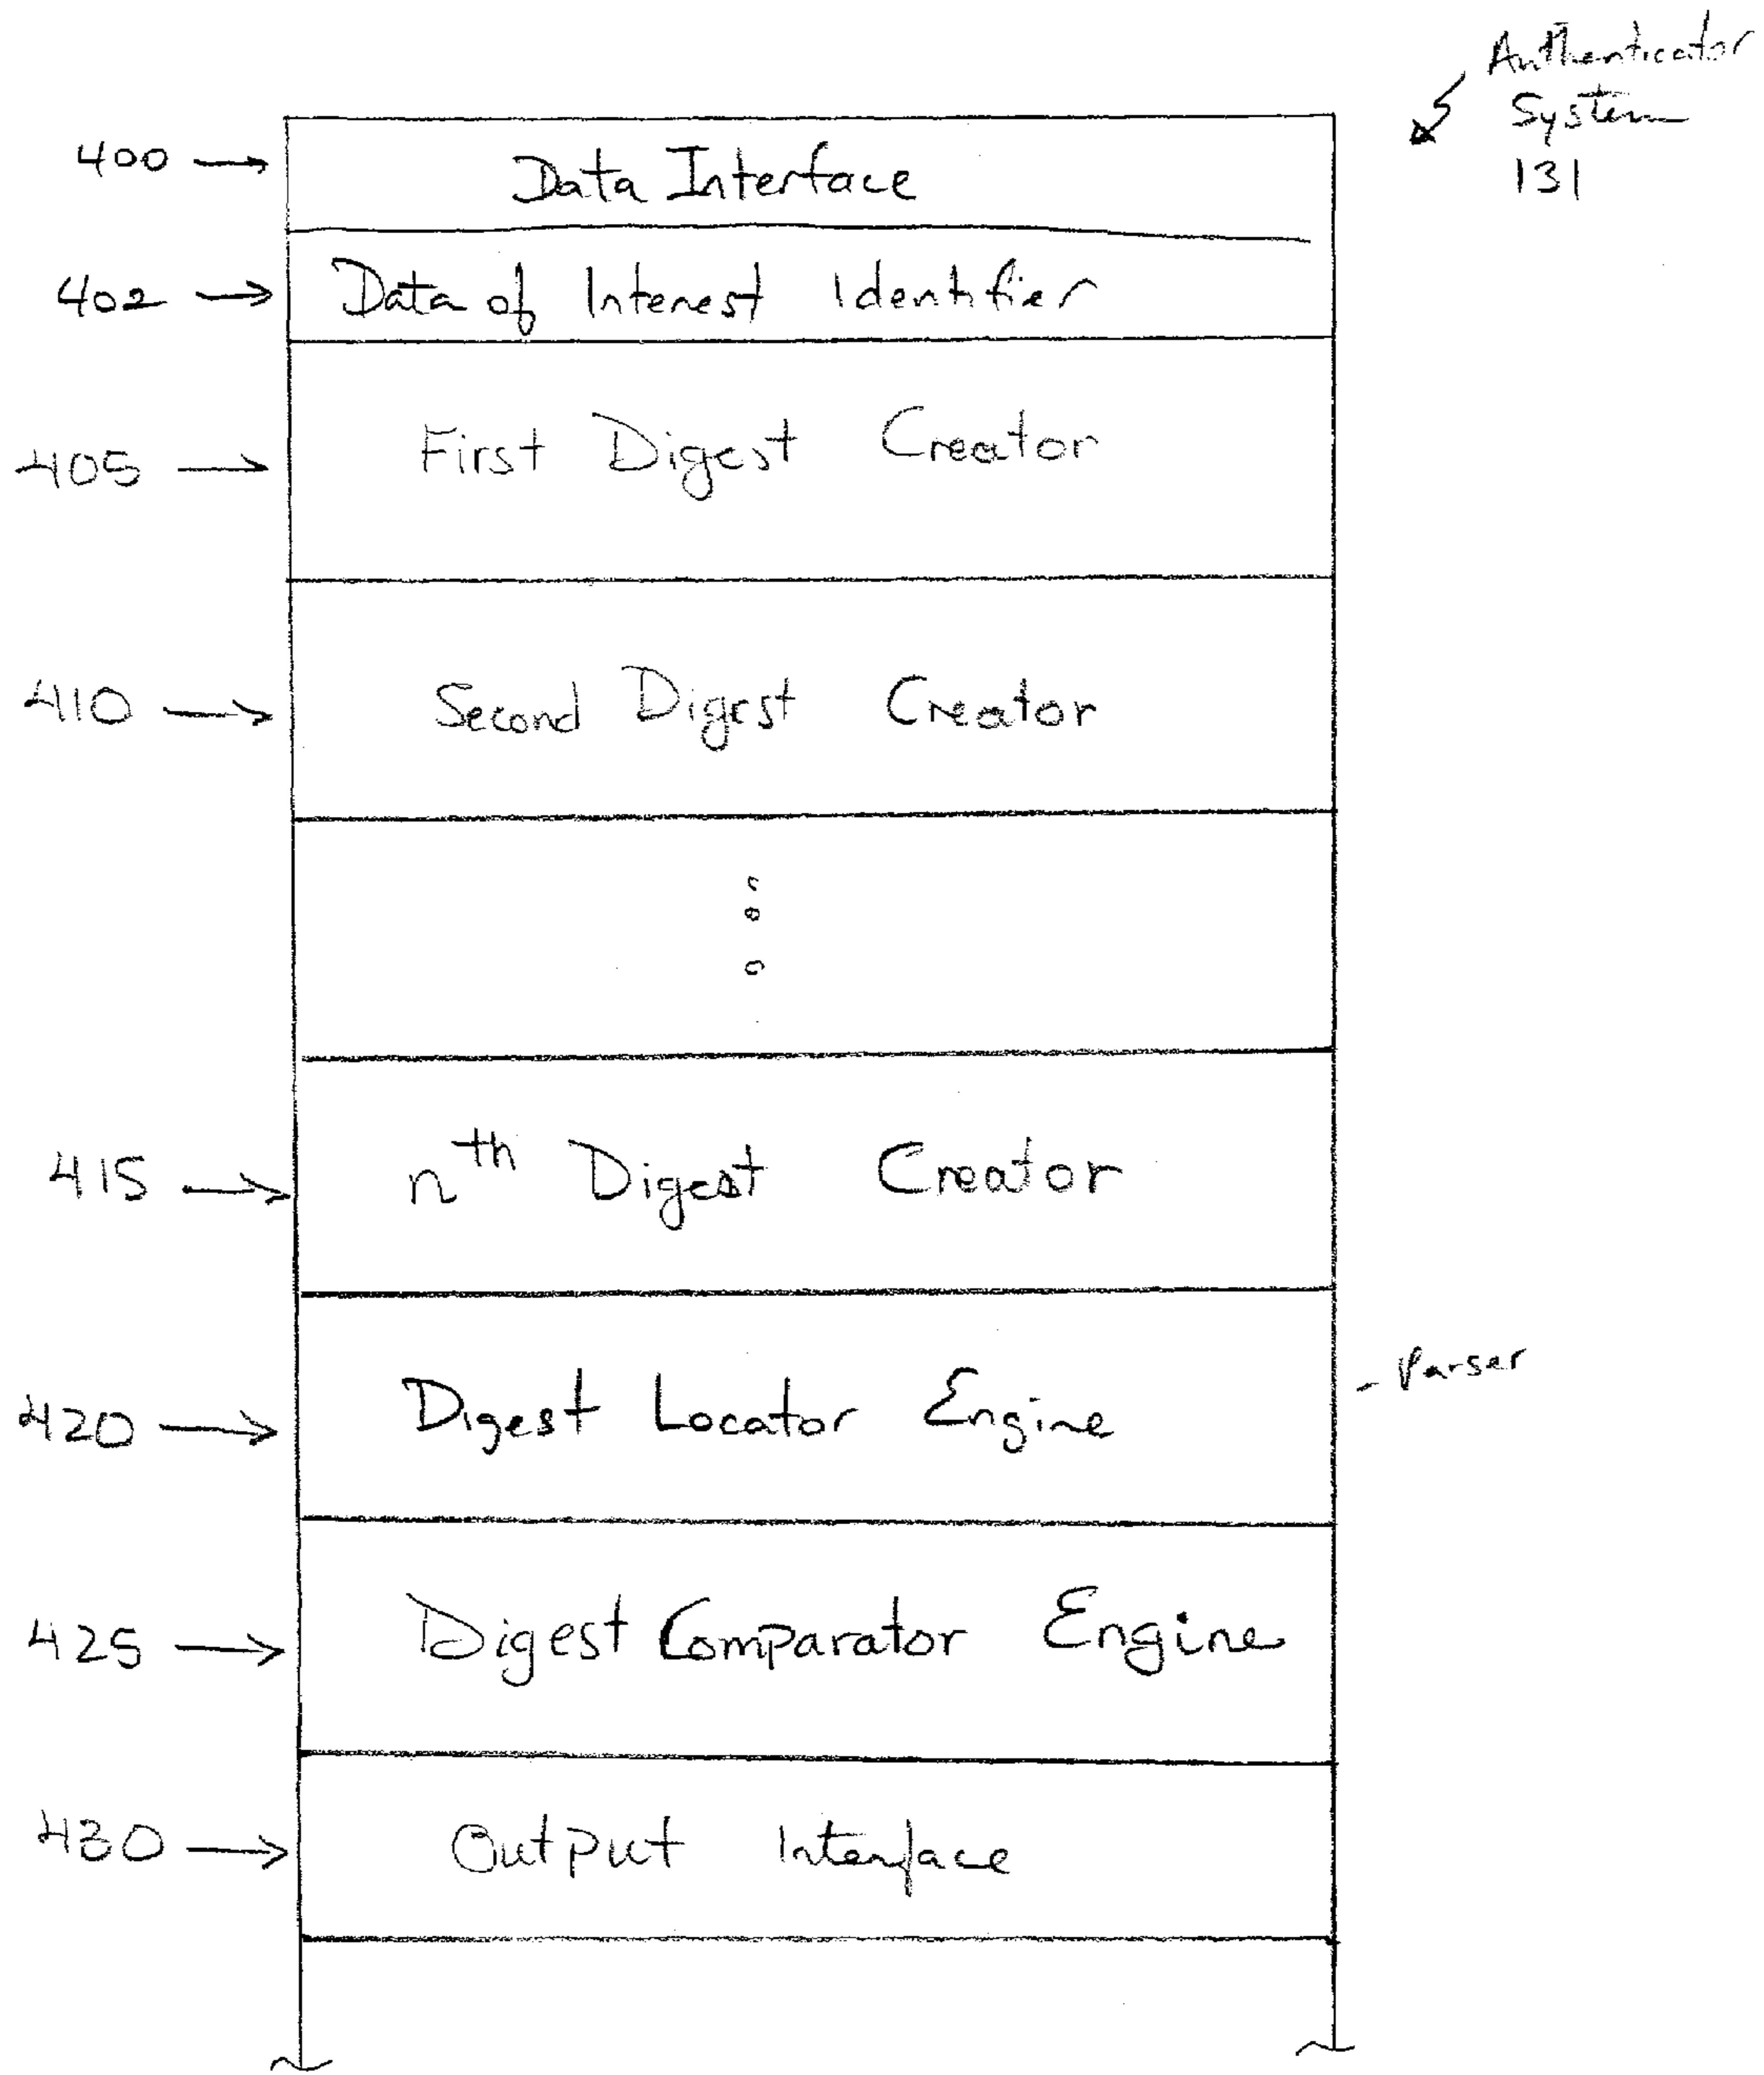 Authenticator
System
131
400 → Data Interface
402 → Data of Interest Identifier
405 → First Digest Creator
410 → Second Digest Creator
415 → nth Digest Creator
- Parser
420 → Digest Locator Engine
425 → Digest Comparator Engine
430 → Output Interface